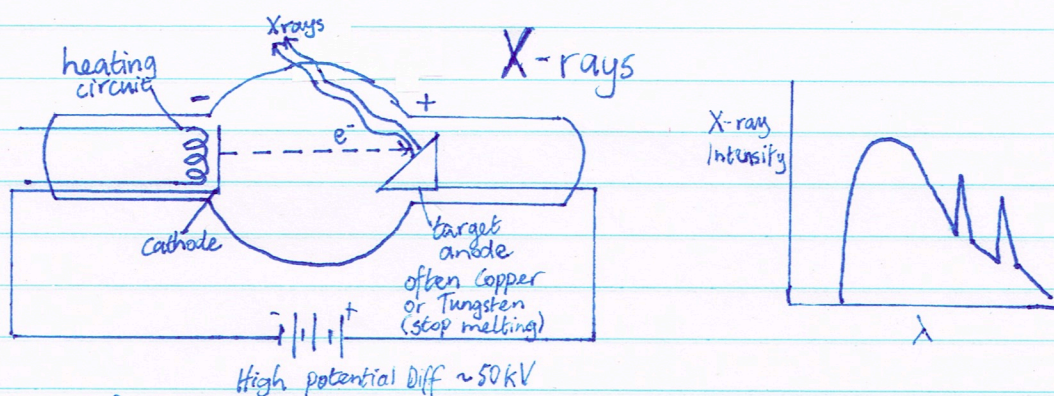 X-rays
Xrays
heating
circuit
-
+
e-
cathode
target
anode
often Copper
or Tungsten
(stop melting)
-
+
High potential Diff ~50kV
X-ray
Intensity
λ